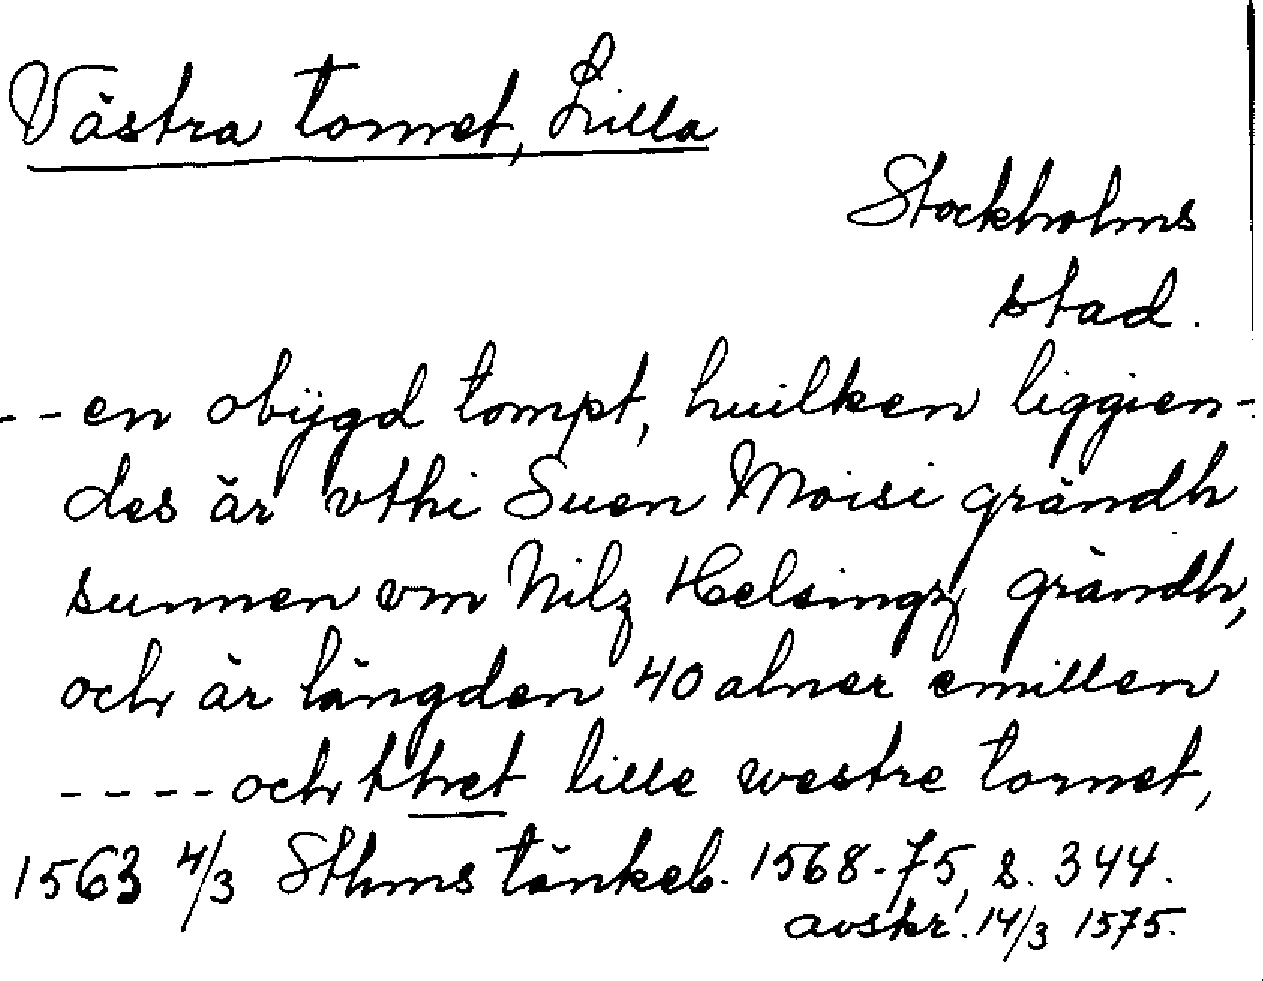 Västra tornet, Lilla
Stockholms
stad.
--en obÿgd tompt, huilken liggien-
des är vthi Suen Moisi grändh
sunnen vm Nilz Helsingz grändh,
och är längden 40 alner emillen
----och thet lille westre tornet,
1563 4/3 Sthms tänkeb. 1568-75, s. 344.
avskr. 14/3 1575.